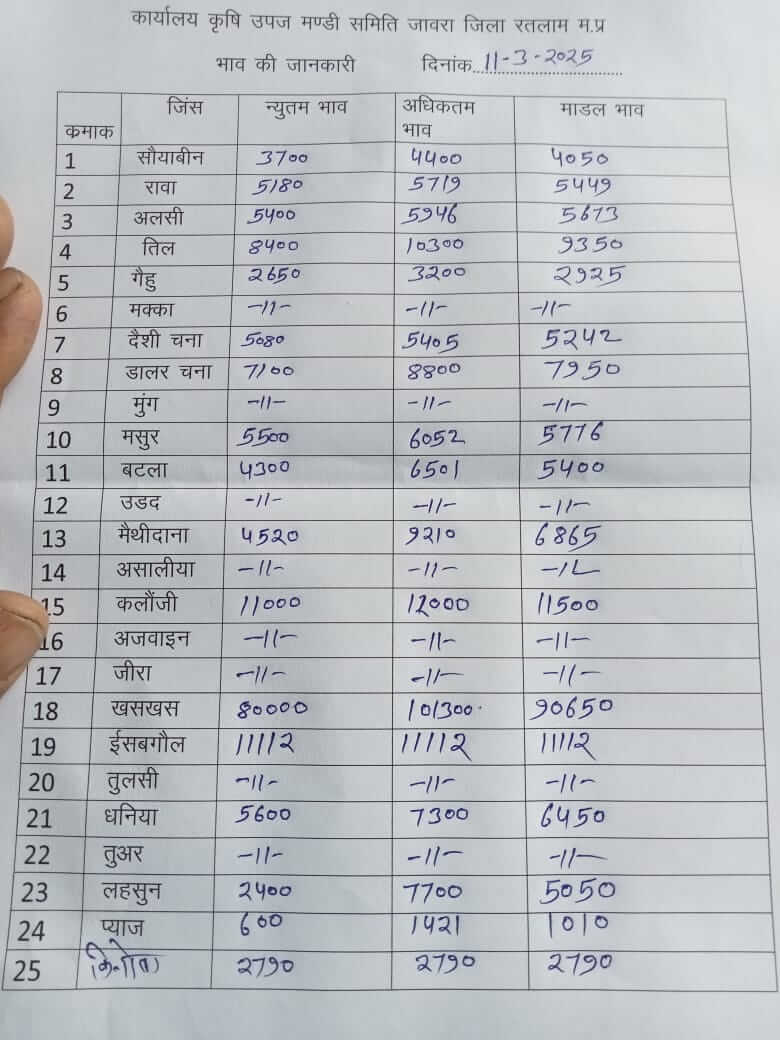 कार्यालय कृषि उपज मण्डी समिति जावरा जिला रतलाम म.प्र
भाव की जानकारी दिनांक 11-3-2025
क्रमाक जिंस न्युतम भाव अधिकतम भाव माडल भाव
1 सौयाबीन 3700 4400 4050
2 रावा 5180 5719 5449
3 अलसी 5400 5946 5673
4 तिल 8400 10300 9350
5 गैहु 2650 3200 2925
6 मक्का -11- -11- -11-
7 दैशी चना 5080 5405 5242
8 डालर चना 7100 8800 7950
9 मुंग -11- -11- -11-
10 मसुर 5500 6052 5776
11 बटला 4300 6501 5400
12 उडद -11- -11- -11-
13 मैथीदाना 4520 9210 6865
14 असालीया -11- -11- -11-
15 कलौंजी 11000 12000 11500
16 अजवाइन -11- -11- -11-
17 जीरा -11- -11- -11-
18 खसखस 80000 101300 90650
19 ईसबगौल 11112 11112 11112
20 तुलसी -11- -11- -11-
21 धनिया 5600 7300 6450
22 तुअर -11- -11- -11-
23 लहसुन 2400 7700 5050
24 प्याज 600 1421 1010
25 2790 2790 2790